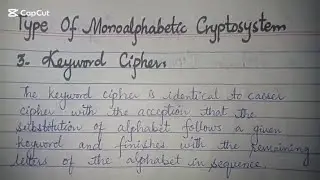 CapCut
Type Of Monoalphabetic Cryptosystem
3. Keyword Cipher.
The keyword cipher is identical to caeser
cipher with the acception that the
substitution of alphabet follows a given
keyword and finishes with the remaining
letters of the alphabet in sequence